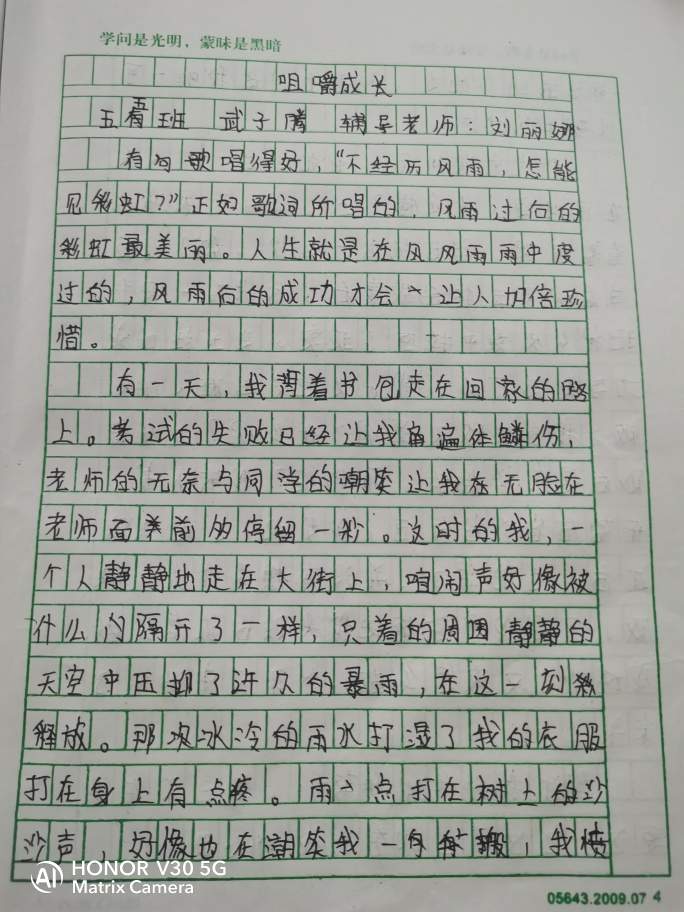 学问是光明，蒙昧是黑暗
咀嚼成长
五班 武子腾 辅导老师：刘丽娜
有句歌唱得好，“不经历风雨，怎能
见彩虹？”正如歌词所唱的，风雨过后的
彩虹最美丽。人生就是在风风雨雨中度
过的，风雨后的成功才会让人加倍珍
惜。
有一天，我背着书包走在回家的路
上。考试的失败已经让我遍体鳞伤，
老师的无奈与同学的嘲笑让我无脸在
老师面前多停留一秒。这时的我，一
个人静静地走在大街上，喧闹声好像被
什么隔开了一样，只着的周围静静的
天空中压抑了许久的暴雨，在这一刻
释放。那次冰冷的雨水打湿了我的衣服
打在身上有点疼。雨点打在树上的沙
沙声，好像也在嘲笑我一般，我
HONOR V30 5G
Matrix Camera
05643.2009.07 4